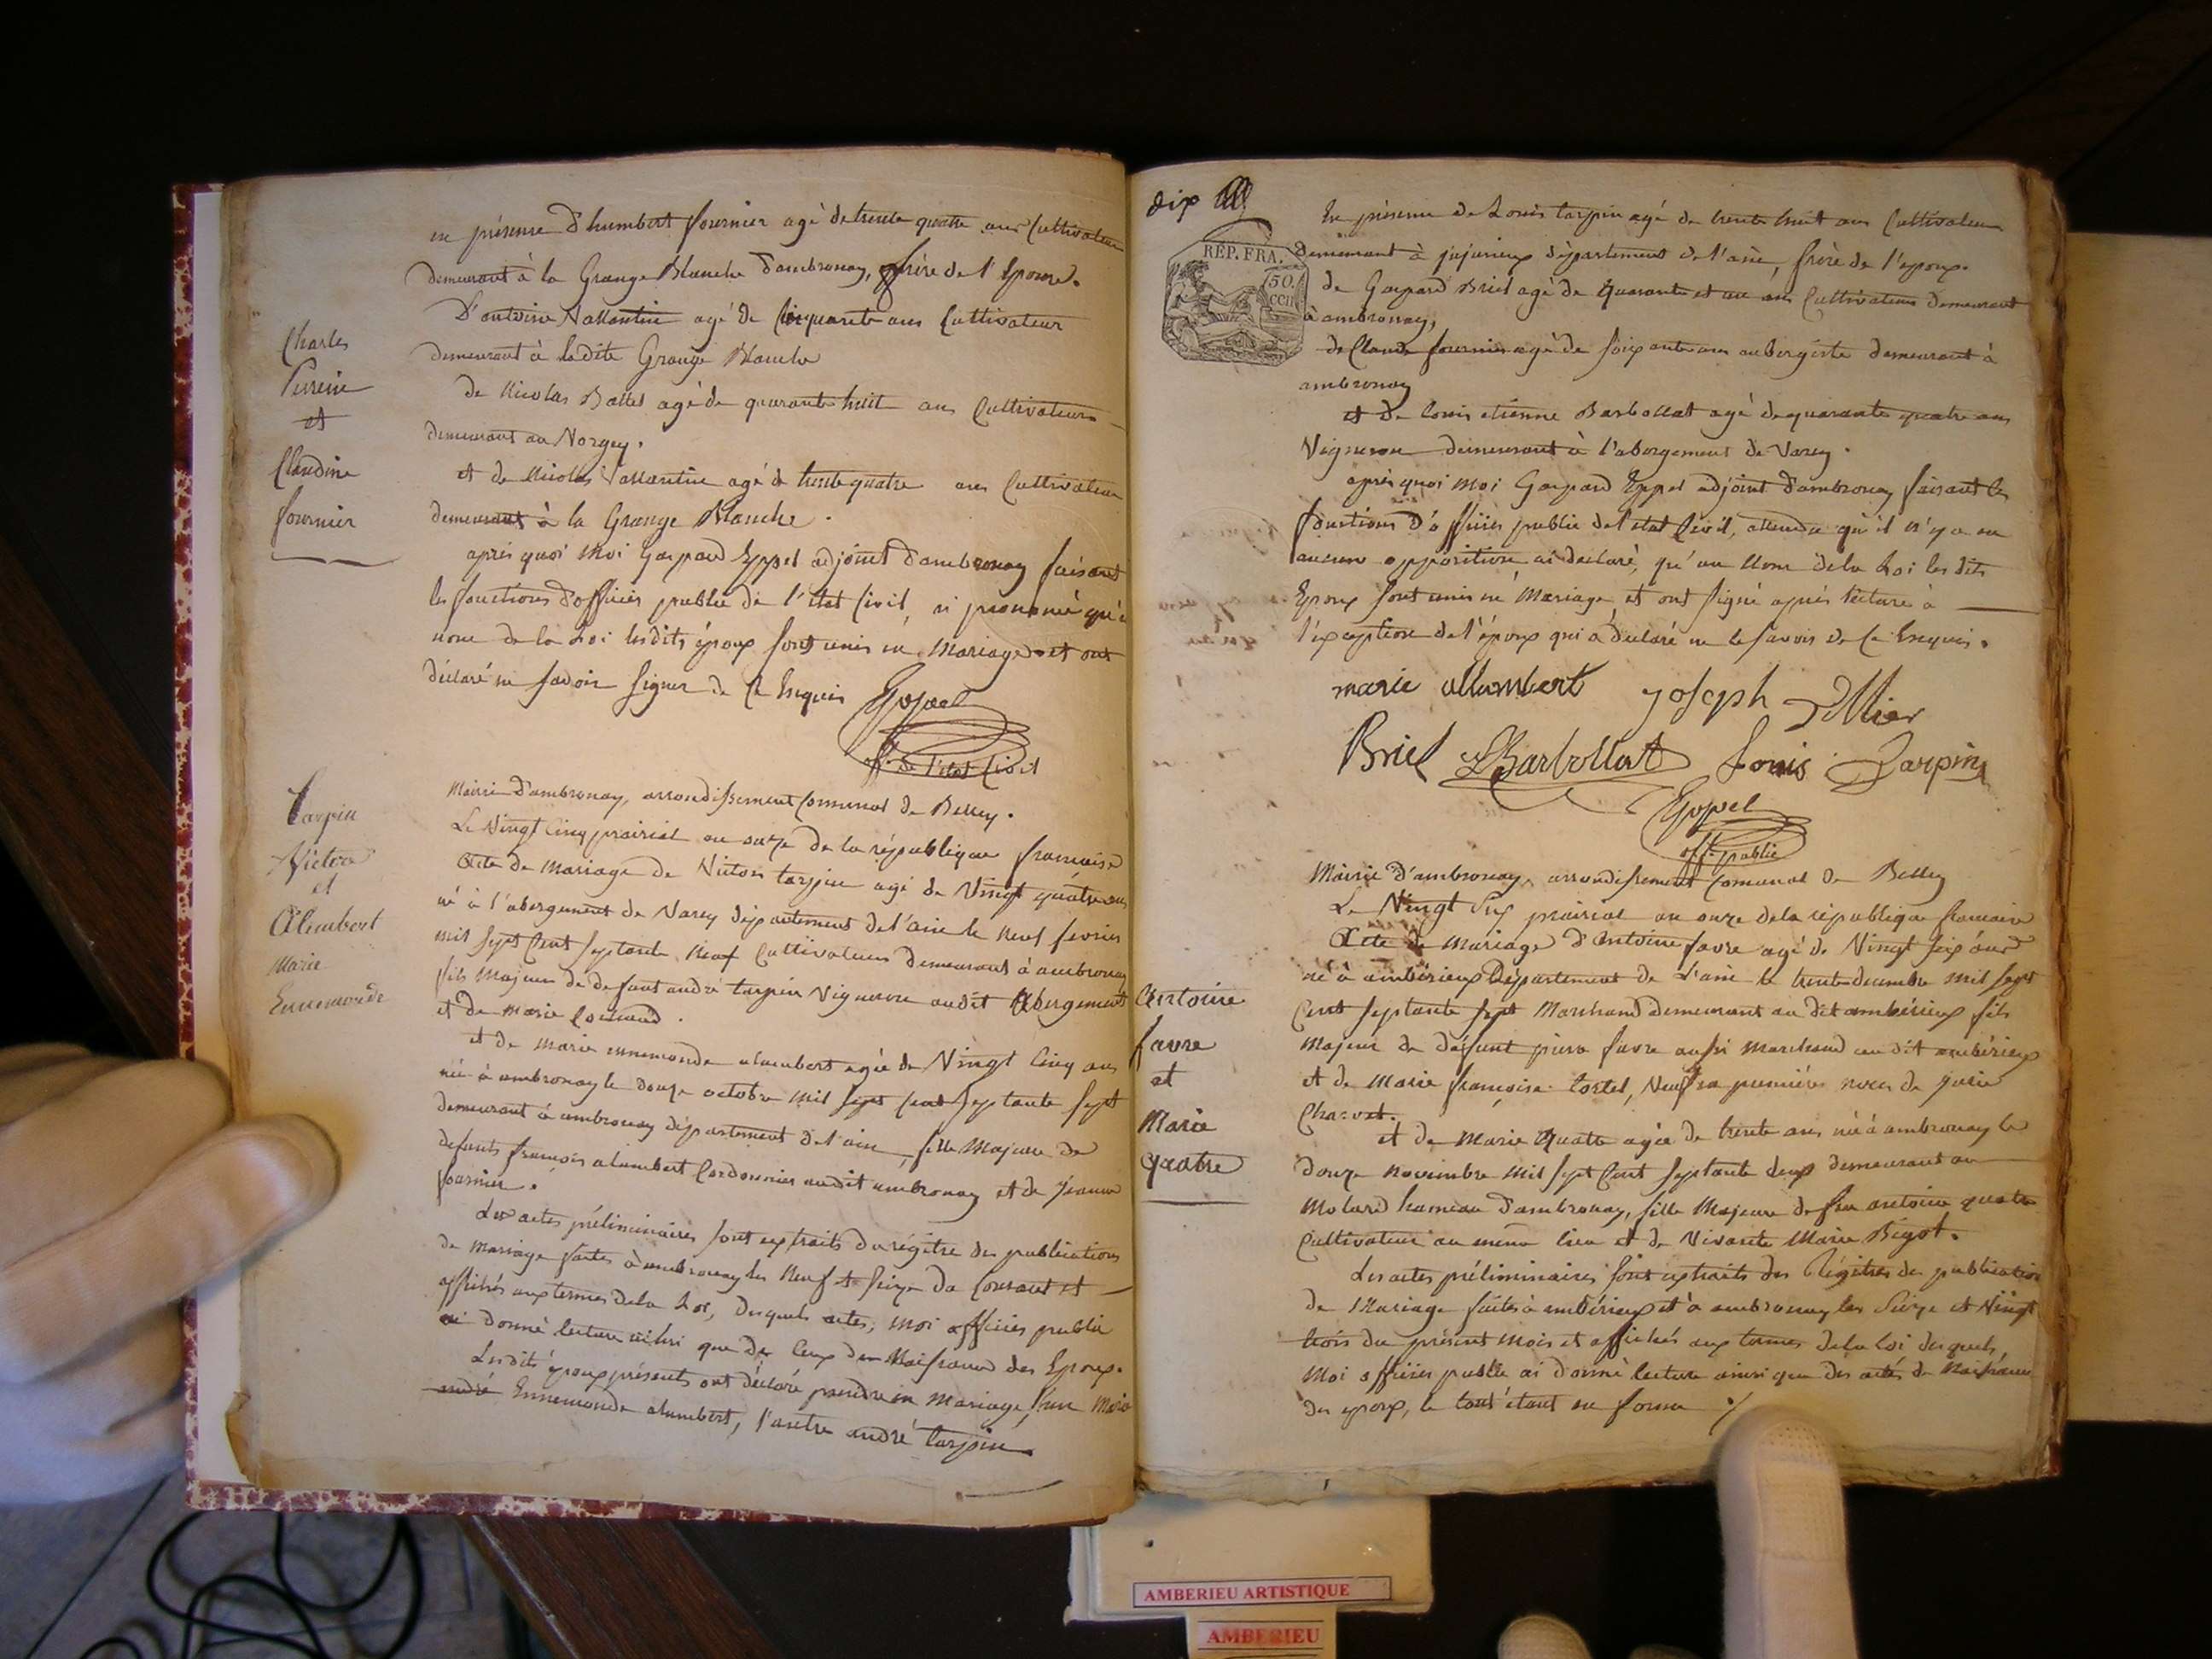 en présence d'humbert fournier agé de trente quatre ans Cultivateur
demeurant à la Grange Blanche d'ambronay, frère de l'Epouse.
D'antoine Vallantin agé de Cinquante ans Cultivateur
demeurant à ladite Grange Blanche
de Nicolas Battet agé de quarante huit ans Cultivateur
demeurant au
et de Nicolas Vallantin agé de trente quatre ans Cultivateur
demeurant à la Grange Blanche.
après quoi Moi Gaspard Eppel adjoint d'ambronay faisant
les fonctions d'officier public de l'état Civil, ai prononcé qu'a
nom de la Loi lesdits époux sont unis en Mariage et ont
déclaré ne savoir signer de ce Enquis
off. de l'état Civil
Charles
Perrein
et
Claudine
fournier
Tarpin
Victor
et
Alembert
Marie
Ennemonde
Mairie d'ambronay, arrondissement Comunal de Belley.
Le Vingt Cinq prairial an onze de la république francaise
Acte de Mariage de Victor tarpin agé de Vingt quatre ans
né à l'abergement de Varey département de l'ain le neuf fevrier
mil sept Cent septante neuf Cultivateur demeurant à ambronay
fils Majeur de defunt andré tarpin Vigneron audit Abergement
et de Marie
et de Marie ennemonde alambert agée de Vingt Cinq ans
née à ambronay le douze octobre mil sept Cent septante sept
demeurant à ambronay département de l'ain, fille Majeure de
defunts françois alambert Cordonnier audit ambronay et de Jeanne
fournier.
Les actes préliminaires sont extraits du régitre des publications
de Mariage faites à ambronay les Neuf et seize du Courant et
affichés aux termes de la Loi, desquels actes, Moi officier public
ai donné lecture ainsi que de Ceux de Naissance des Epoux.
Lesdits époux présents ont déclaré prendre en Mariage, l'un Marie
andré Ennemonde alambert, l'autre andré tarpin
dix
RÉP. FRA.
50.
cen
En présence de Louis tarpin agé de trente huit ans Cultivateur
demeurant à jujurieux département de l'ain, frère de l'epoux.
de Gaspard Briel agé de quarante et un ans Cultivateur demeurant
à ambronay,
de Claude fournier agé de soixante ans aubergiste demeurant à
ambronay
et de Louis etienne Barbollat agé de quarante quatre ans
Vigneron demeurant à l'abergement de Varey.
après quoi Moi Gaspard Eppel adjoint d'ambronay faisant les
fonctions d'officier public de l'etat Civil, attendu qu'il n'y a eu
aucune opposition ai déclaré, qu'au Nom de la Loi les dits
Epoux sont unis en Mariage, et ont signé après lecture à
l'exception de l'époux qui a déclaré ne le savoir de Ce Enquis.
marie allambert Joseph
Briel LBarbollat Louis Tarpin
Eppel
off. public
Antoine
favre
et
Marie
Quatre
Mairie d'ambronay, arrondissement Comunal de Belley
Le Vingt Six prairial an onze de la république francaise
Acte de Mariage d'Antoine favre agé de Vingt six ans
né à ambérieux Département de L'ain le trente decembre mil sept
Cent septante sept Marchand demeurant au dit ambérieux fils
Majeur de défunt pierre favre aussi Marchand au dit ambérieux
et de Marie françoise tortel, Veuf en premières noces de
Charvet.
et de Marie Quatre agée de trente ans née à ambronay le
douze Novembre mil sept Cent septante deux demeurant au
Molard hameau d'ambronay, fille Majeure de feu antoine quatre
Cultivateur au même lieu et de Vivante Marie Bigot.
Les actes préliminaires sont extraits des Régitres des publications
de Mariage faites à ambérieux et à ambronay les Seize et Vingt
trois du présent Mois et affichés aux termes de la Loi desquels,
Moi officier public ai donné lecture ainsi que des actes de Naissance
des epoux, le tout étant en forme
AMBERIEU ARTISTIQUE
AMBERIEU